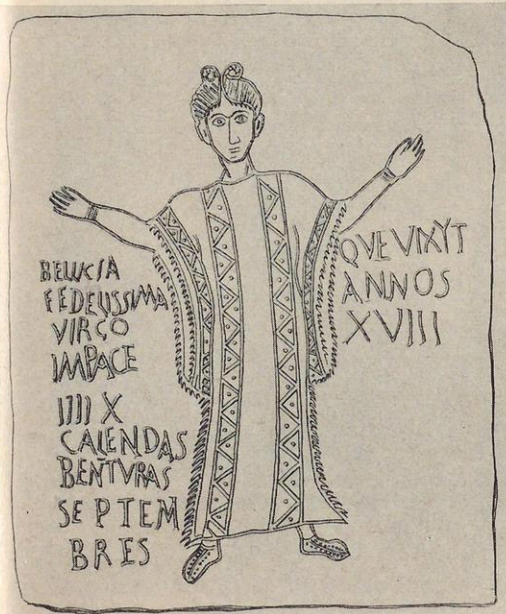 BELUCIA
FEDELISSIMA
VIRGO
IMPACE
IIII X
CALENDAS
BENTVRAS
SEPTEM
BRES
QVE VIXYT
ANNOS
XVIII